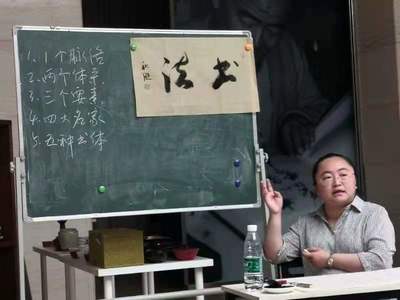 1. 1个脉络
2. 两个体系
3. 三个要素
4. 四大名家
5. 五种书体
书法